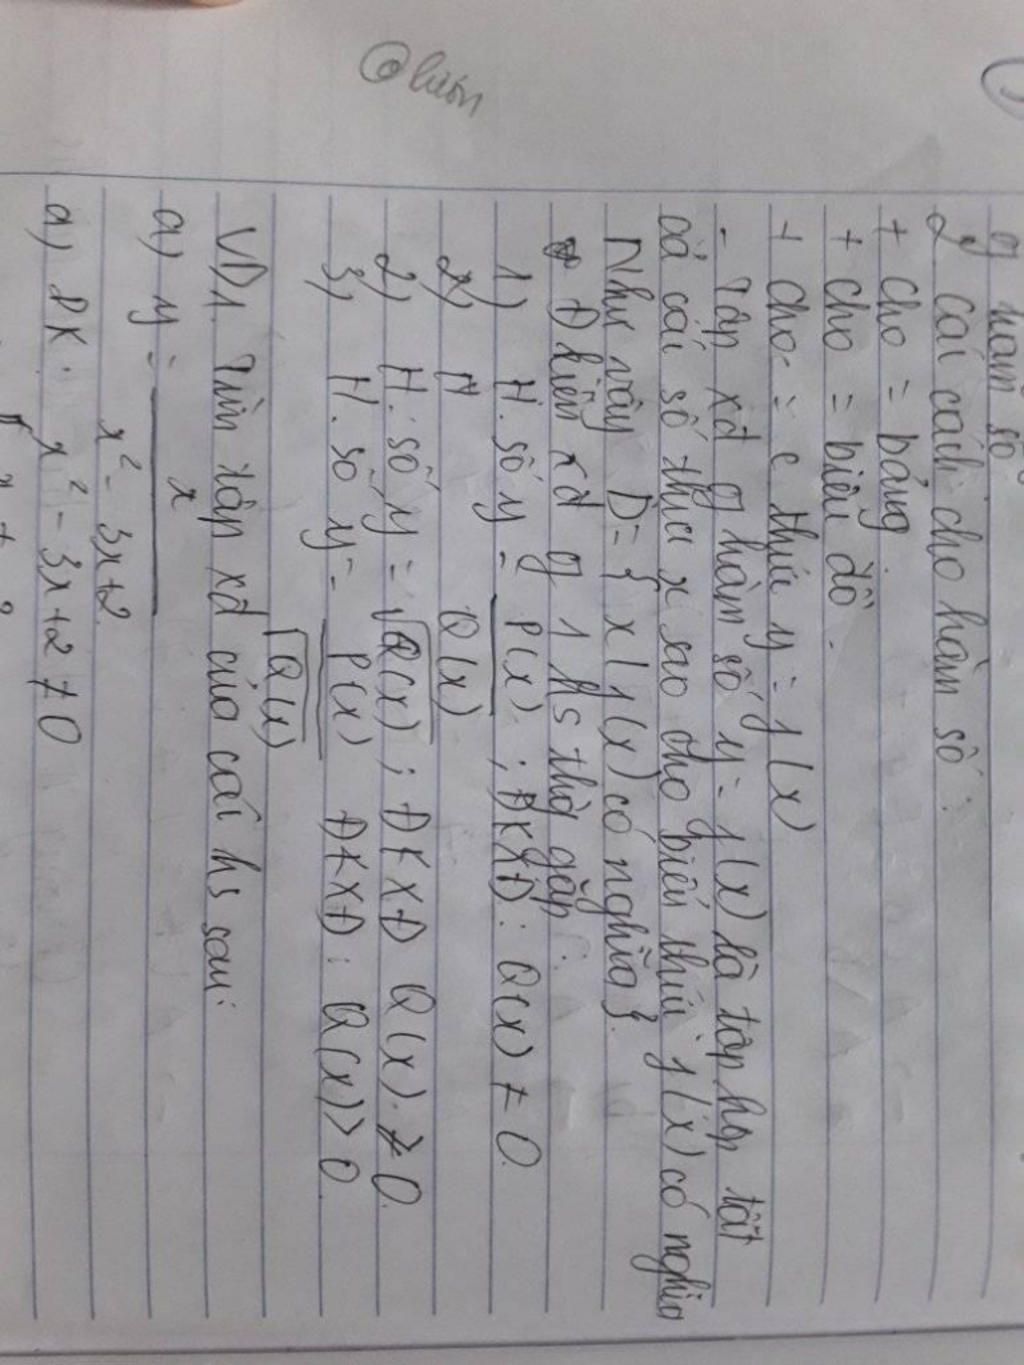 hàm số
2 cái cách cho hàm số:
+ cho = bảng
+ cho = biểu đồ.
+ cho = c thức y = f(x)
- Tập xđ g hàm số y = f(x) là tập hợp tất
cả cái số thực x sao cho biểu thức f(x) có nghĩa
Như vậy D = { x | f(x) có nghĩa}.
Đ kiện xđ g 1 hs thg gặp:
1) H. số y = P(x) / Q(x) ; ĐKXĐ: Q(x) ≠ 0.
2) H. số y = √Q(x) ; ĐKXĐ Q(x) ≥ 0.
3) H. số y = P(x) / √Q(x) ĐKXĐ: Q(x) > 0.
VD1. Tìm tập xđ của cái hs sau:
a) y = x / x² - 3x + 2
a) ĐK. x² - 3x + 2 ≠ 0
@huón